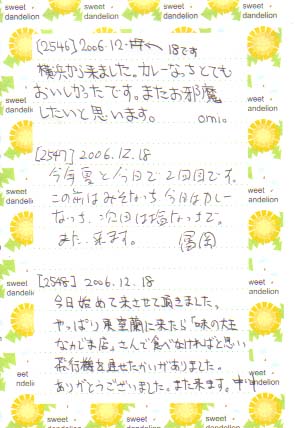 sweet dandelion
sweet dandelion
sweet dandelion
[2546] 2006.12. 18です
横浜から来ました。カレーなっちとても
おいしかったです。またお邪魔
したいと思います。 omi。
[2547] 2006.12.18
今年夏と今日で2回目です。
この前はみそなっち 今日はカレー
なっち、次回は塩なっちで。
また来ます。 冨岡
[2548] 2006.12.18
今日始めて来させて頂きました。
やっぱり東室蘭に来たら「味の大王
なかじま店」さんで食べなければと思い
飛行機を遅せたかいがありました。
ありがとうございました。また来ます。
sweet dandelion
sweet dandelion
sweet dandelion